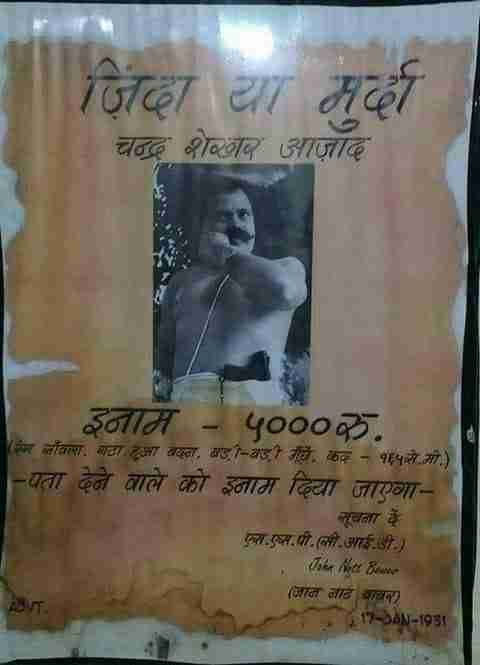 ज़िंदा या मुर्दा
चन्द्र शेखर आज़ाद
इनाम - ५००० रु.
(रंग साँवला, गठा हुआ बदन, बड़ी-बड़ी मूँछें, कद - १६५ से.मी.)
-पता देने वाले को इनाम दिया जाएगा-
सूचना दें
एस.एस.पी.(सी.आई.डी.)
John Nott Bower
(जान नाट बावर)
17-JAN-1931